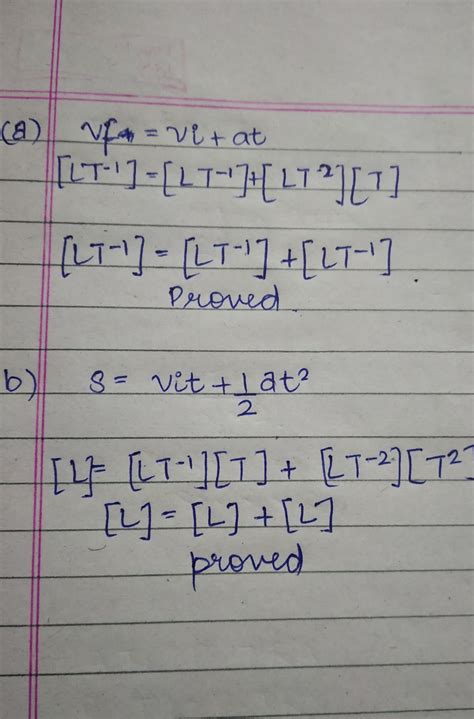 (a) vf = vi + at
[LT-1] = [LT-1] + [LT2][T]
[LT-1] = [LT-1] + [LT-1]
Proved.
b) S = vit + 1/2 at²
[L] = [LT-1][T] + [LT-2][T2]
[L] = [L] + [L]
proved